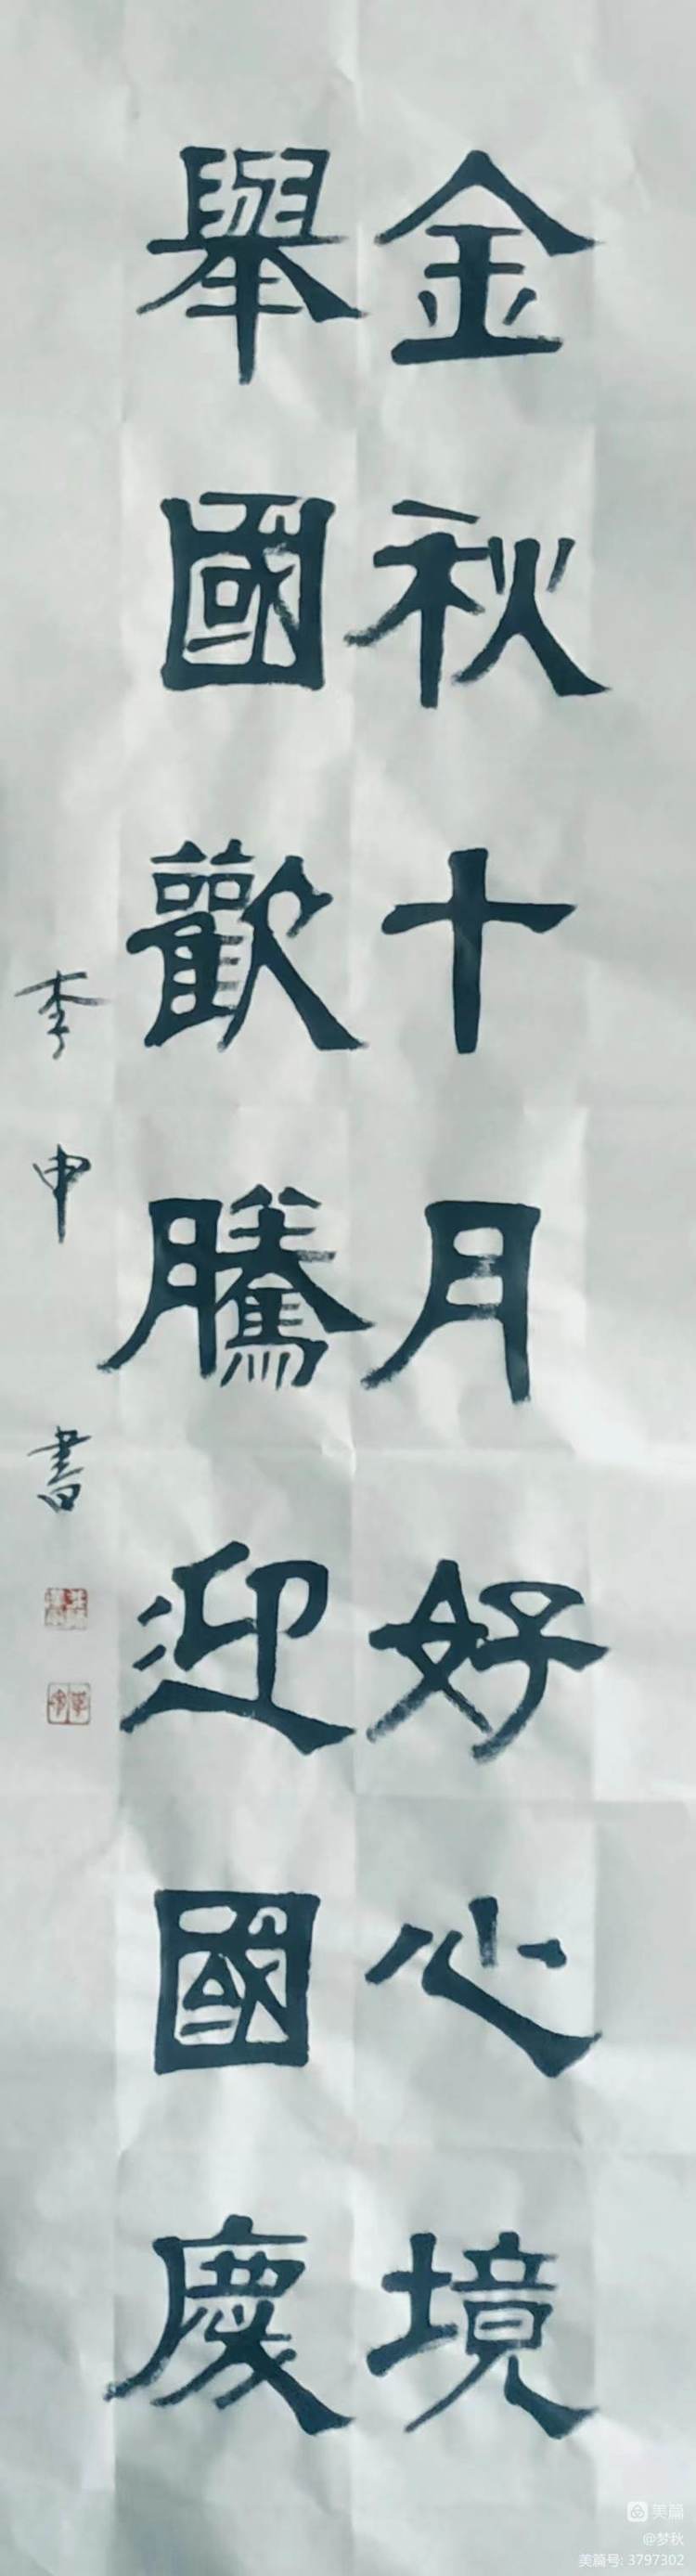 金秋十月好心境
舉國歡騰迎國慶
李申書
美篇
@梦秋
美篇号: 3797302